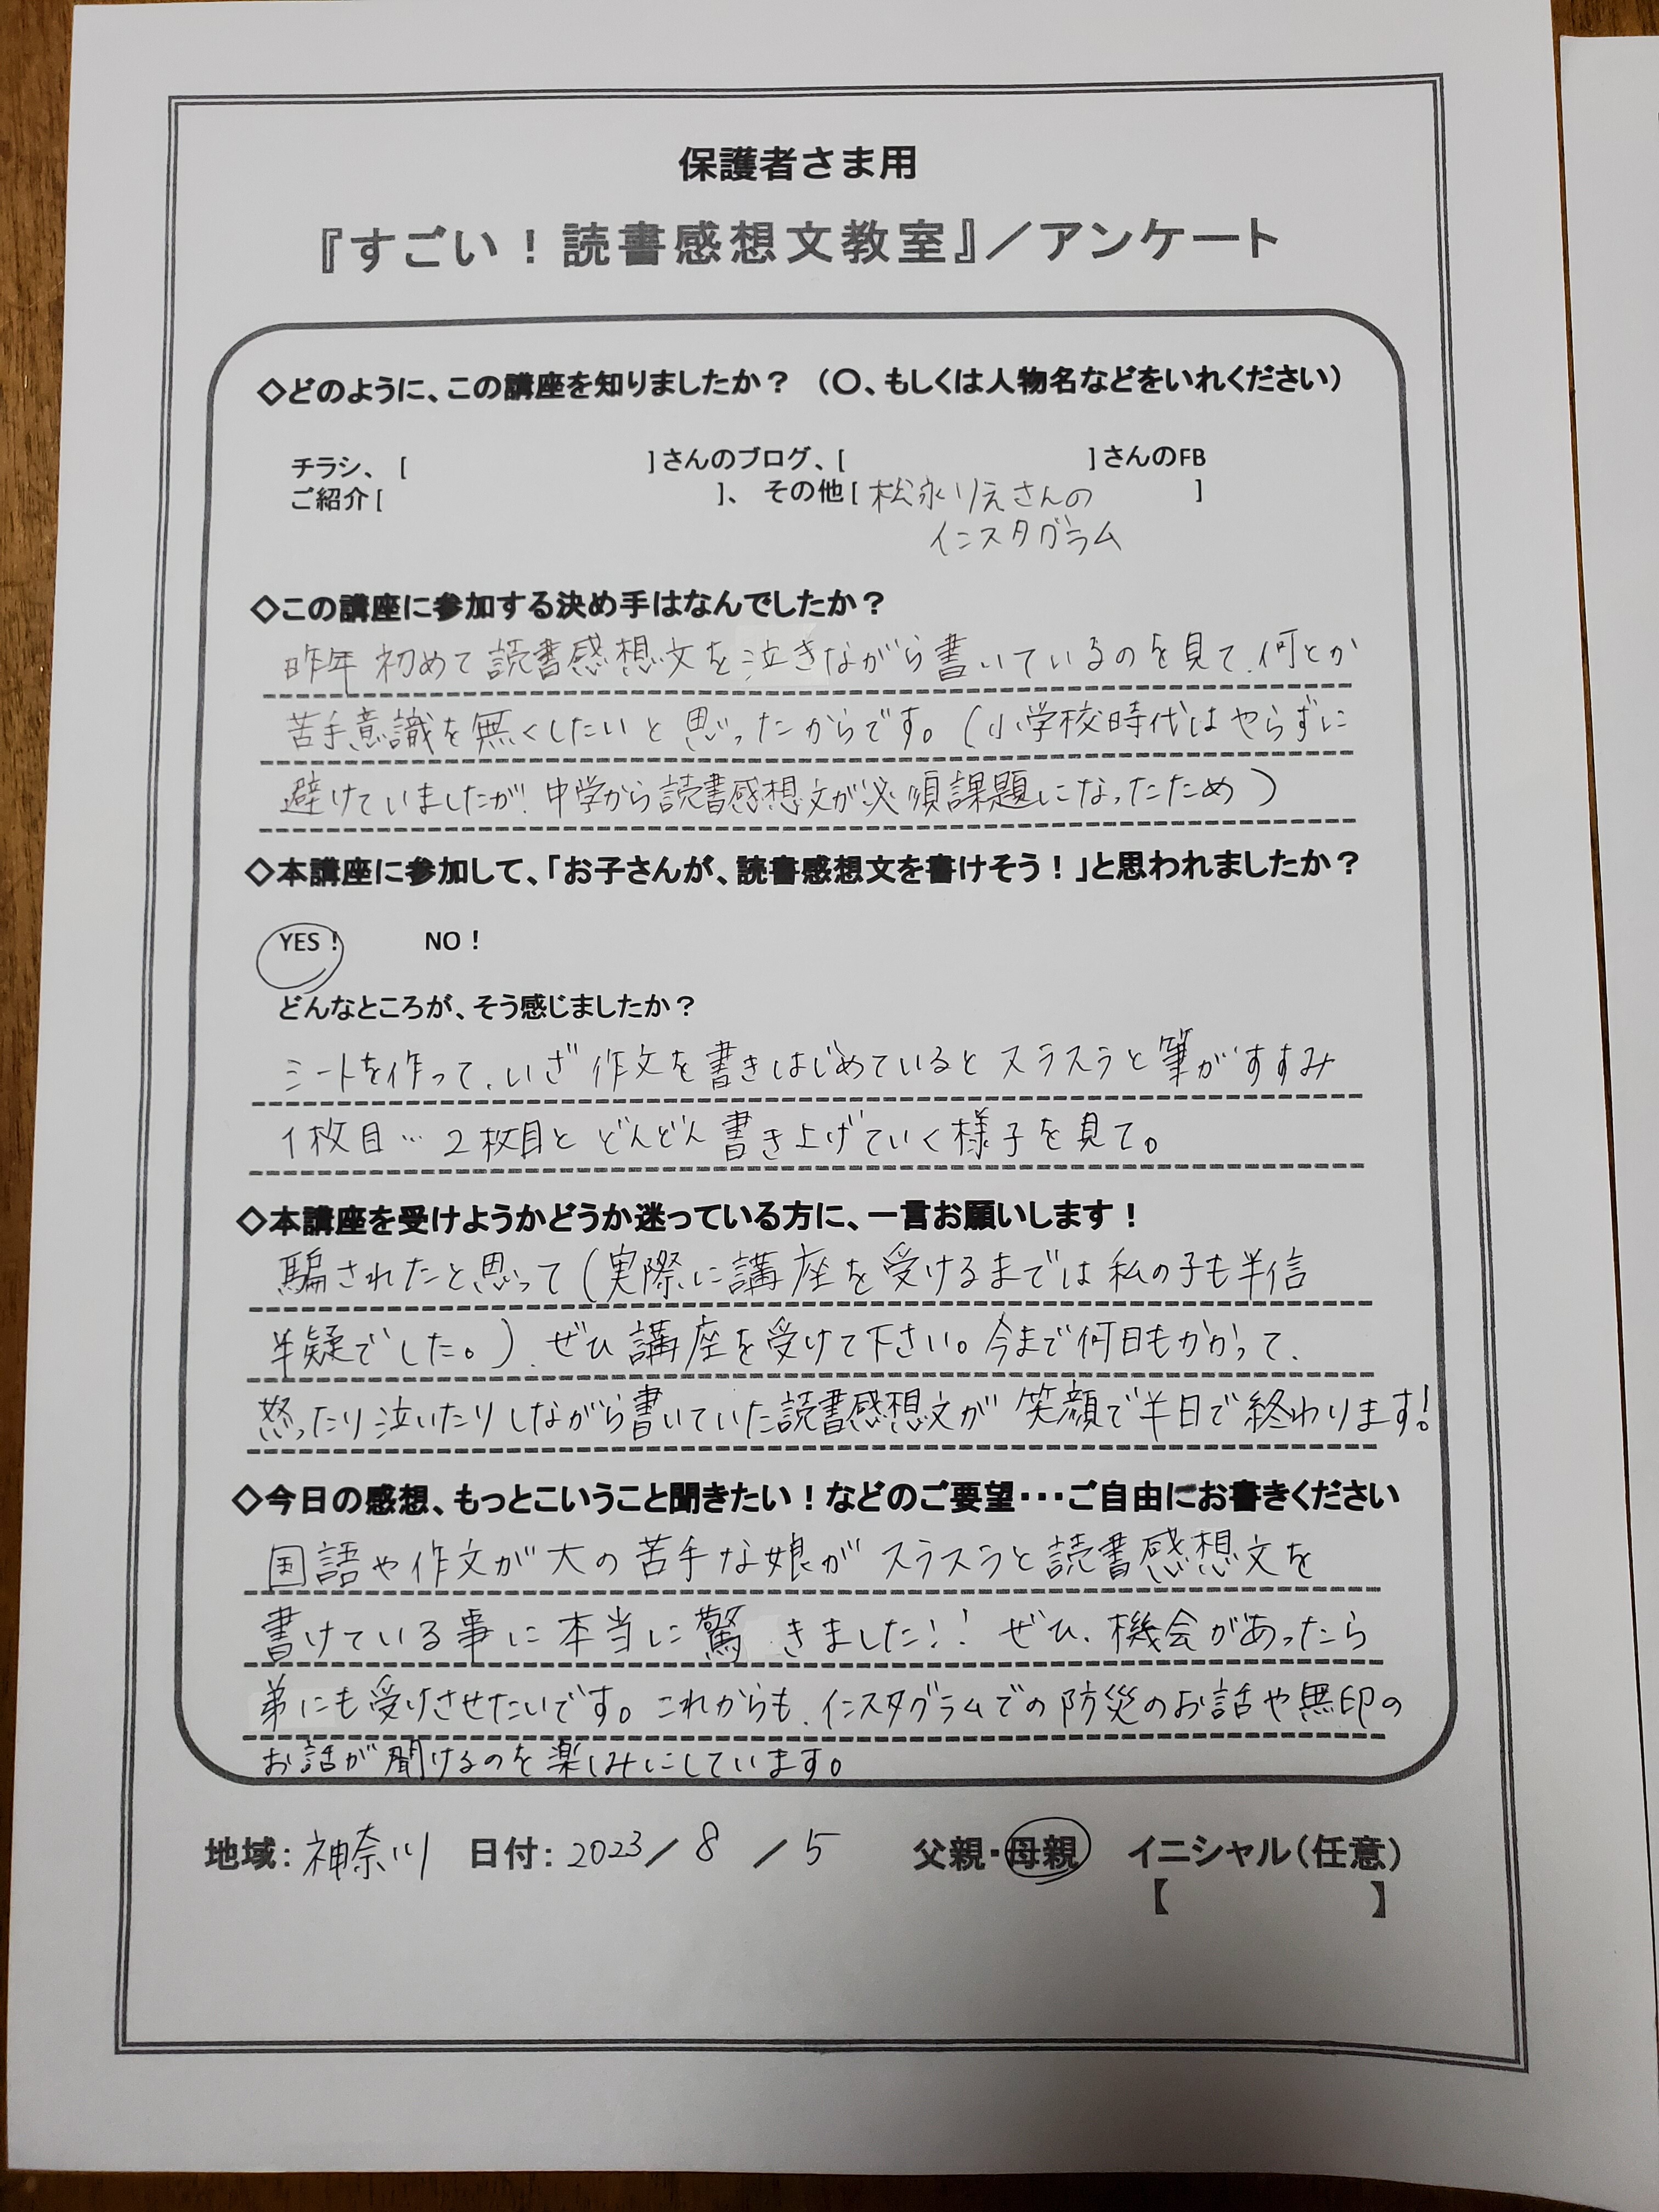 保護者さま用
『すごい！読書感想文教室』／アンケート
◇どのように、この講座を知りましたか？（〇、もしくは人物名などをいれください）
チラシ、[　　　]さんのブログ、[　　　]さんのFB
ご紹介[　　　]、その他[松永りえさんの　]
インスタグラム
◇この講座に参加する決め手はなんでしたか？
昨年 初めて読書感想文を泣きながら書いているのを見て、何とか
苦手意識を無くしたいと思ったからです。(小学校時代はやらずに
避けていましたが、中学から読書感想文が必須課題になったため)
◇本講座に参加して、「お子さんが、読書感想文を書けそう！」と思われましたか？
YES！　NO！
どんなところが、そう感じましたか？
シートを作って、いざ作文を書きはじめているとスラスラと筆がすすみ
1枚目…2枚目とどんどん書き上げていく様子を見て。
◇本講座を受けようかどうか迷っている方に、一言お願いします！
騙されたと思って(実際に講座を受けるまでは私の子も半信
半疑でした。)、ぜひ講座を受けて下さい。今まで何日もかかって、
怒ったり泣いたりしながら書いていた読書感想文が笑顔で半日で終わります!
◇今日の感想、もっとこいうこと聞きたい！などのご要望・・・ご自由にお書きください
国語や作文が大の苦手な娘がスラスラと読書感想文を
書けている事に本当に驚きました!! ぜひ、機会があったら
弟にも受けさせたいです。これからも、インスタグラムでの防災のお話や無印の
お話が聞けるのを楽しみにしています。
地域：神奈川　日付：2023／8／5　父親・母親　イニシャル（任意）
【　　　】